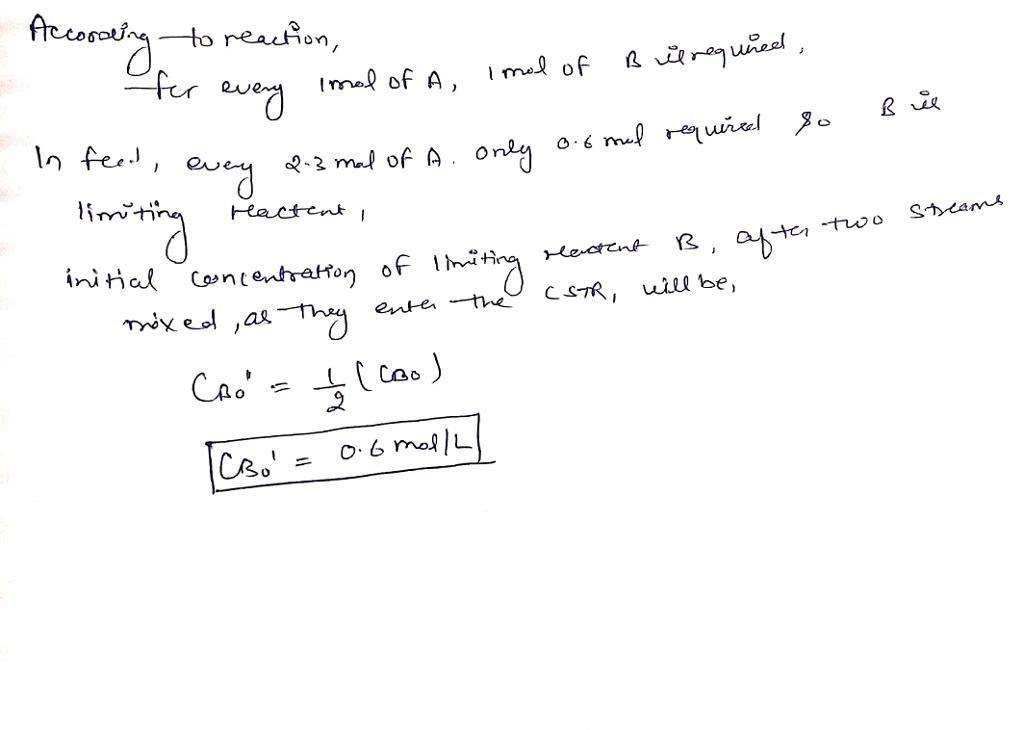 According to reaction,
for every 1 mol of A, 1 mol of B is required,
In feed, every 2.3 mol of A. only 0.6 mol required so B is
limiting reactent,
initial concentration of limiting reactent B, after two streams
mixed, as they enter the CSTR, will be,
CBo' = 1/2 (CBo)
CBo' = 0.6 mol/L